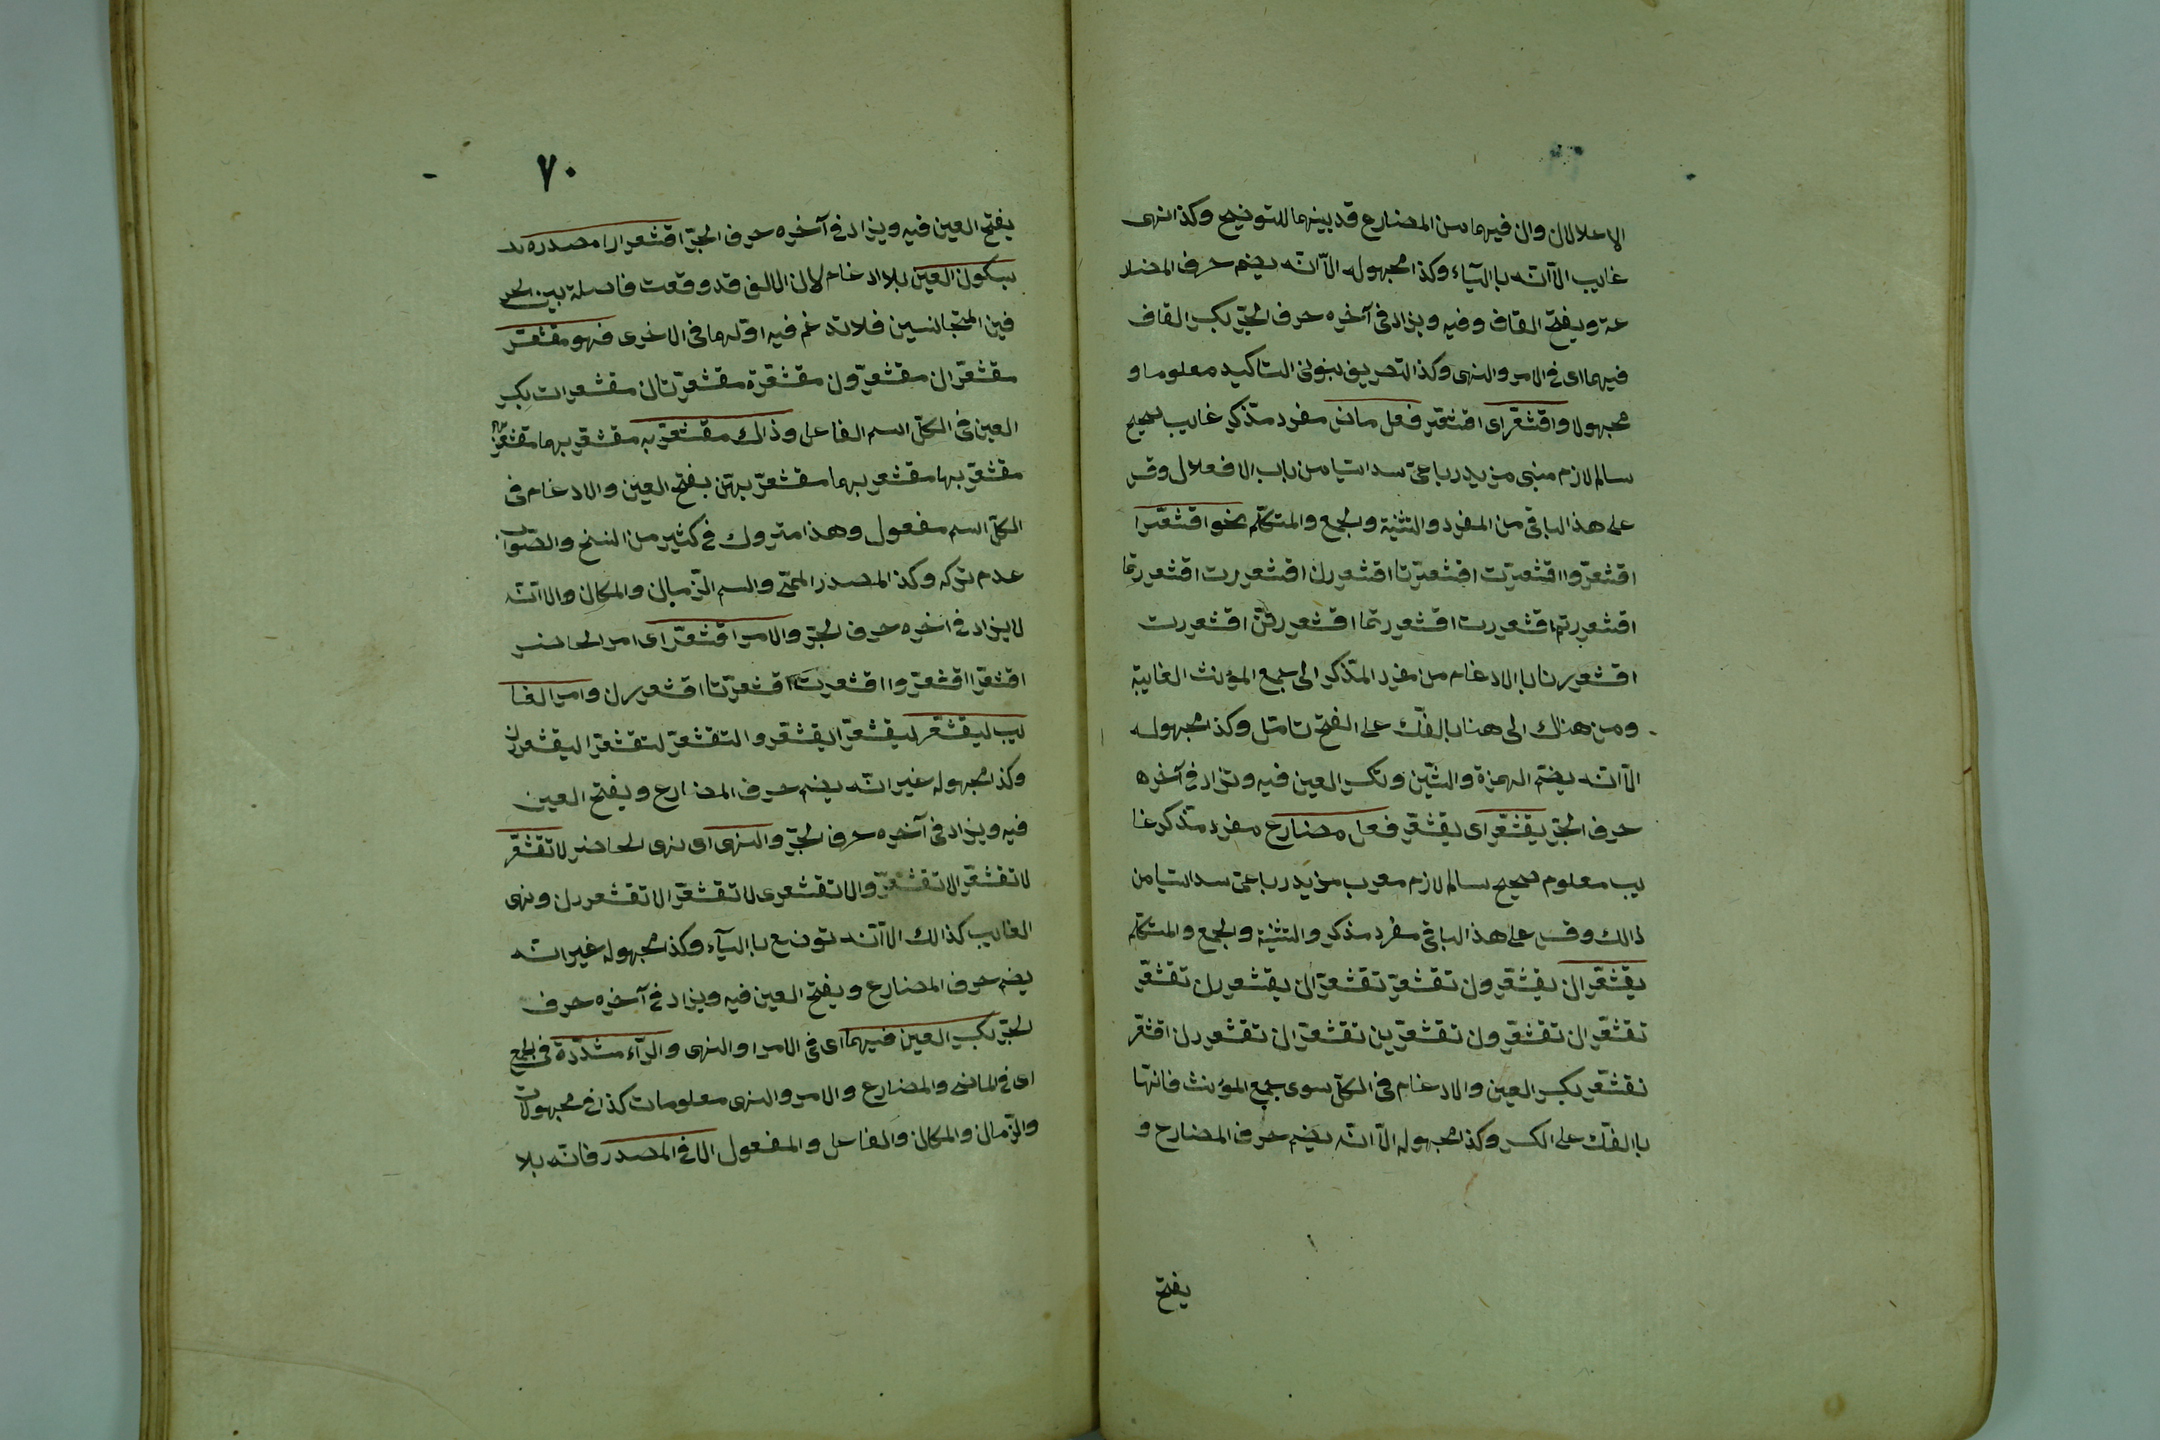 الاعلالان وان فيهما من المضارع قد بينهما للتوضيح وكذا نهى
غايب الّا انّه بالياء وكذا مجهوله الّا انّه يضم حرف المضار
عة ويفتح القاف وفيه ويزاد فى آخره حرف الجرّ بكسر القاف
فيهما اى فى الامر والنهى وكذا التصريف بنونى التاكيد معلوما و
مجهولا واقشعرّ اى اقشعرّ فعل ماض مفرد مذكر غايب صحيح
سالم لازم مبنى مزيد رباعىّ سداسيا من باب الافعلال وقس
على هذا الباقى من المفرد والتثنية والجمع والمتكلّم نحو اقشعرّا
اقشعرّوا اقشعرّت اقشعرّتا اقشعررن اقشعررت اقشعررتما
اقشعررتم اقشعررت اقشعررتما اقشعررتنّ اقشعررت
اقشعررنا بالادغام من مفرد المذكر الى جمع المؤنث الغايبة
ومن هناك الى هنا بالفكّ على الفتح تامّل وكذا مجهوله
الّا انّه يضمّ الهمزة والشّين وتكسر العين فيه وتزاد فى آخره
حرف الجرّ يقشعرّ اى يقشعرّ فعل مضارع مفرد مذكر غا
يب معلوم صحيح سالم لازم معرب مزيد رباعىّ سداسيا من
ذالك وقس على هذا الباقى مفرد مذكر والتثنية والجمع والمتكلّم
يقشعرّان يقشعرّون تقشعرّ تقشعرّان يقشعررن تقشعرّ
تقشعرّان تقشعرّون تقشعرّين تقشعرّان تقشعررن اقشعرّ
نقشعرّ بكسر العين والادغام فى الكلّ سوى جمع المؤنث فانّها
بالفكّ على الكسر وكذا مجهوله الّا انّه يضم حرف المضارع و
يفتح
٧٠
يفتح العين فيه ويزاد فى آخره حرف الجرّ اقشعرارا مصدره
بسكون العين بلا ادغام لان الالف قد وقعت فاصلة بين الحر
فين المتجانسين فلا تدغم فيه اوّلهما فى الاخرى فهو مقشعرّ
مقشعرّان مقشعرّون مقشعرّة مقشعرّتان مقشعرات بكسر
العين فى الكلّ اسم الفاعل وذالك مقشعرّ به مقشعرّ بهما مقشعرّ بهم
مقشعرّ بها مقشعر بهما مقشعرّ بهنّ بفتح العين والادغام فى
الكلّ اسم مفعول وهذا متروك فى كثير من النسخ والصّواب
عدم تركه وكذا المصدر الميمّى واسم الزّمان والمكان والا انّه
لا يزاد فى اخره حرف الجرّ والامر اقشعرّ اى امر الحاضر
اقشعرّا اقشعرّوا اقشعرى اقشعرّتا اقشعررن وامر الغا
يب ليقشعرّ ليقشعرّا ليقشعرّوا لتقشعرّ لتقشعرّا ليقشعررن
وكذا مجهوله غير انّه يضم حرف المضارع ويفتح العين
فيه ويزاد فى آخره حرف الجرّ والنهى اى نهى الحاضر لا تقشعرّ
لا تقشعرّا لا تقشعرّوا لا تقشعرى لا تقشعرّا لا تقشعررن ونهى
الغايب كذالك الّا انّه توضع بالياء وكذا مجهوله غير انّه
يضم حرف المضارع ويفتح العين فيه ويزاد فى آخره حرف
الجرّ بكسر العين فيهما اى فى الامر والنهى والرّاء مشدّدة فى الجمع
اى فى الماضى والمضارع والامر والنهى معلومات كذا فى مجهولات
والزّمان والمكان والفاعل والمفعول الا فى المصدر فانّه بلا